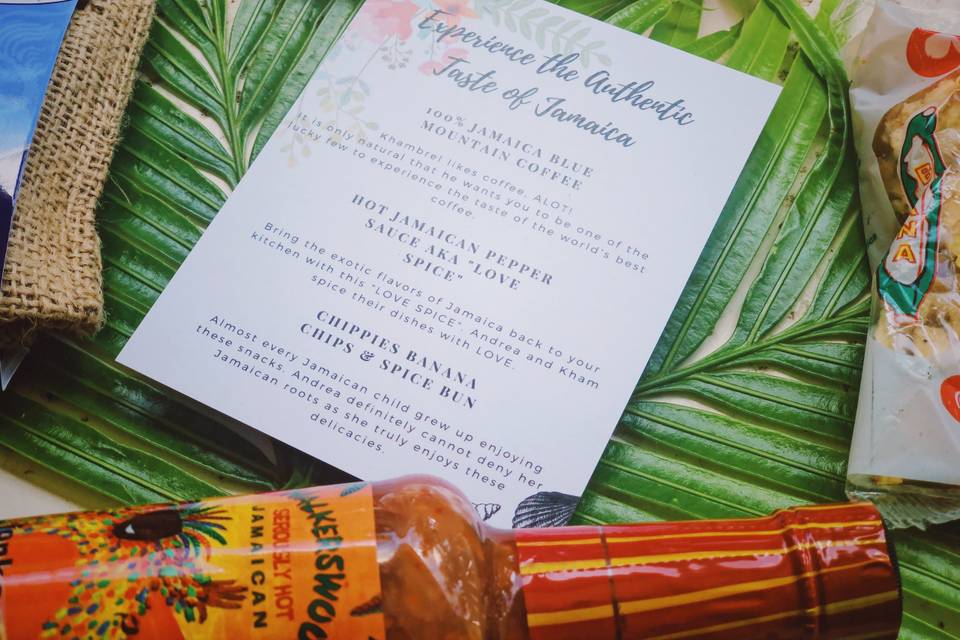 Experience the Authentic
Taste of Jamaica
100% JAMAICA BLUE
MOUNTAIN COFFEE
It is only natural Khambrel likes coffee, ALOT!
lucky few to that he wants you to be one of the
experience the taste of the world's best
coffee.
HOT JAMAICAN PEPPER
SAUCE AKA "LOVE
SPICE"
Bring the exotic flavors of Jamaica back to your
kitchen with this "LOVE SPICE". Andrea and Kham
spice their dishes with LOVE.
CHIPPIES BANANA
CHIPS & SPICE BUN
Almost every Jamaican child grew up enjoying
these snacks. Andrea definitely cannot deny her
Jamaican roots as she truly enjoys these
delicacies.
SERIOUSLY HOT
JAMAICAN